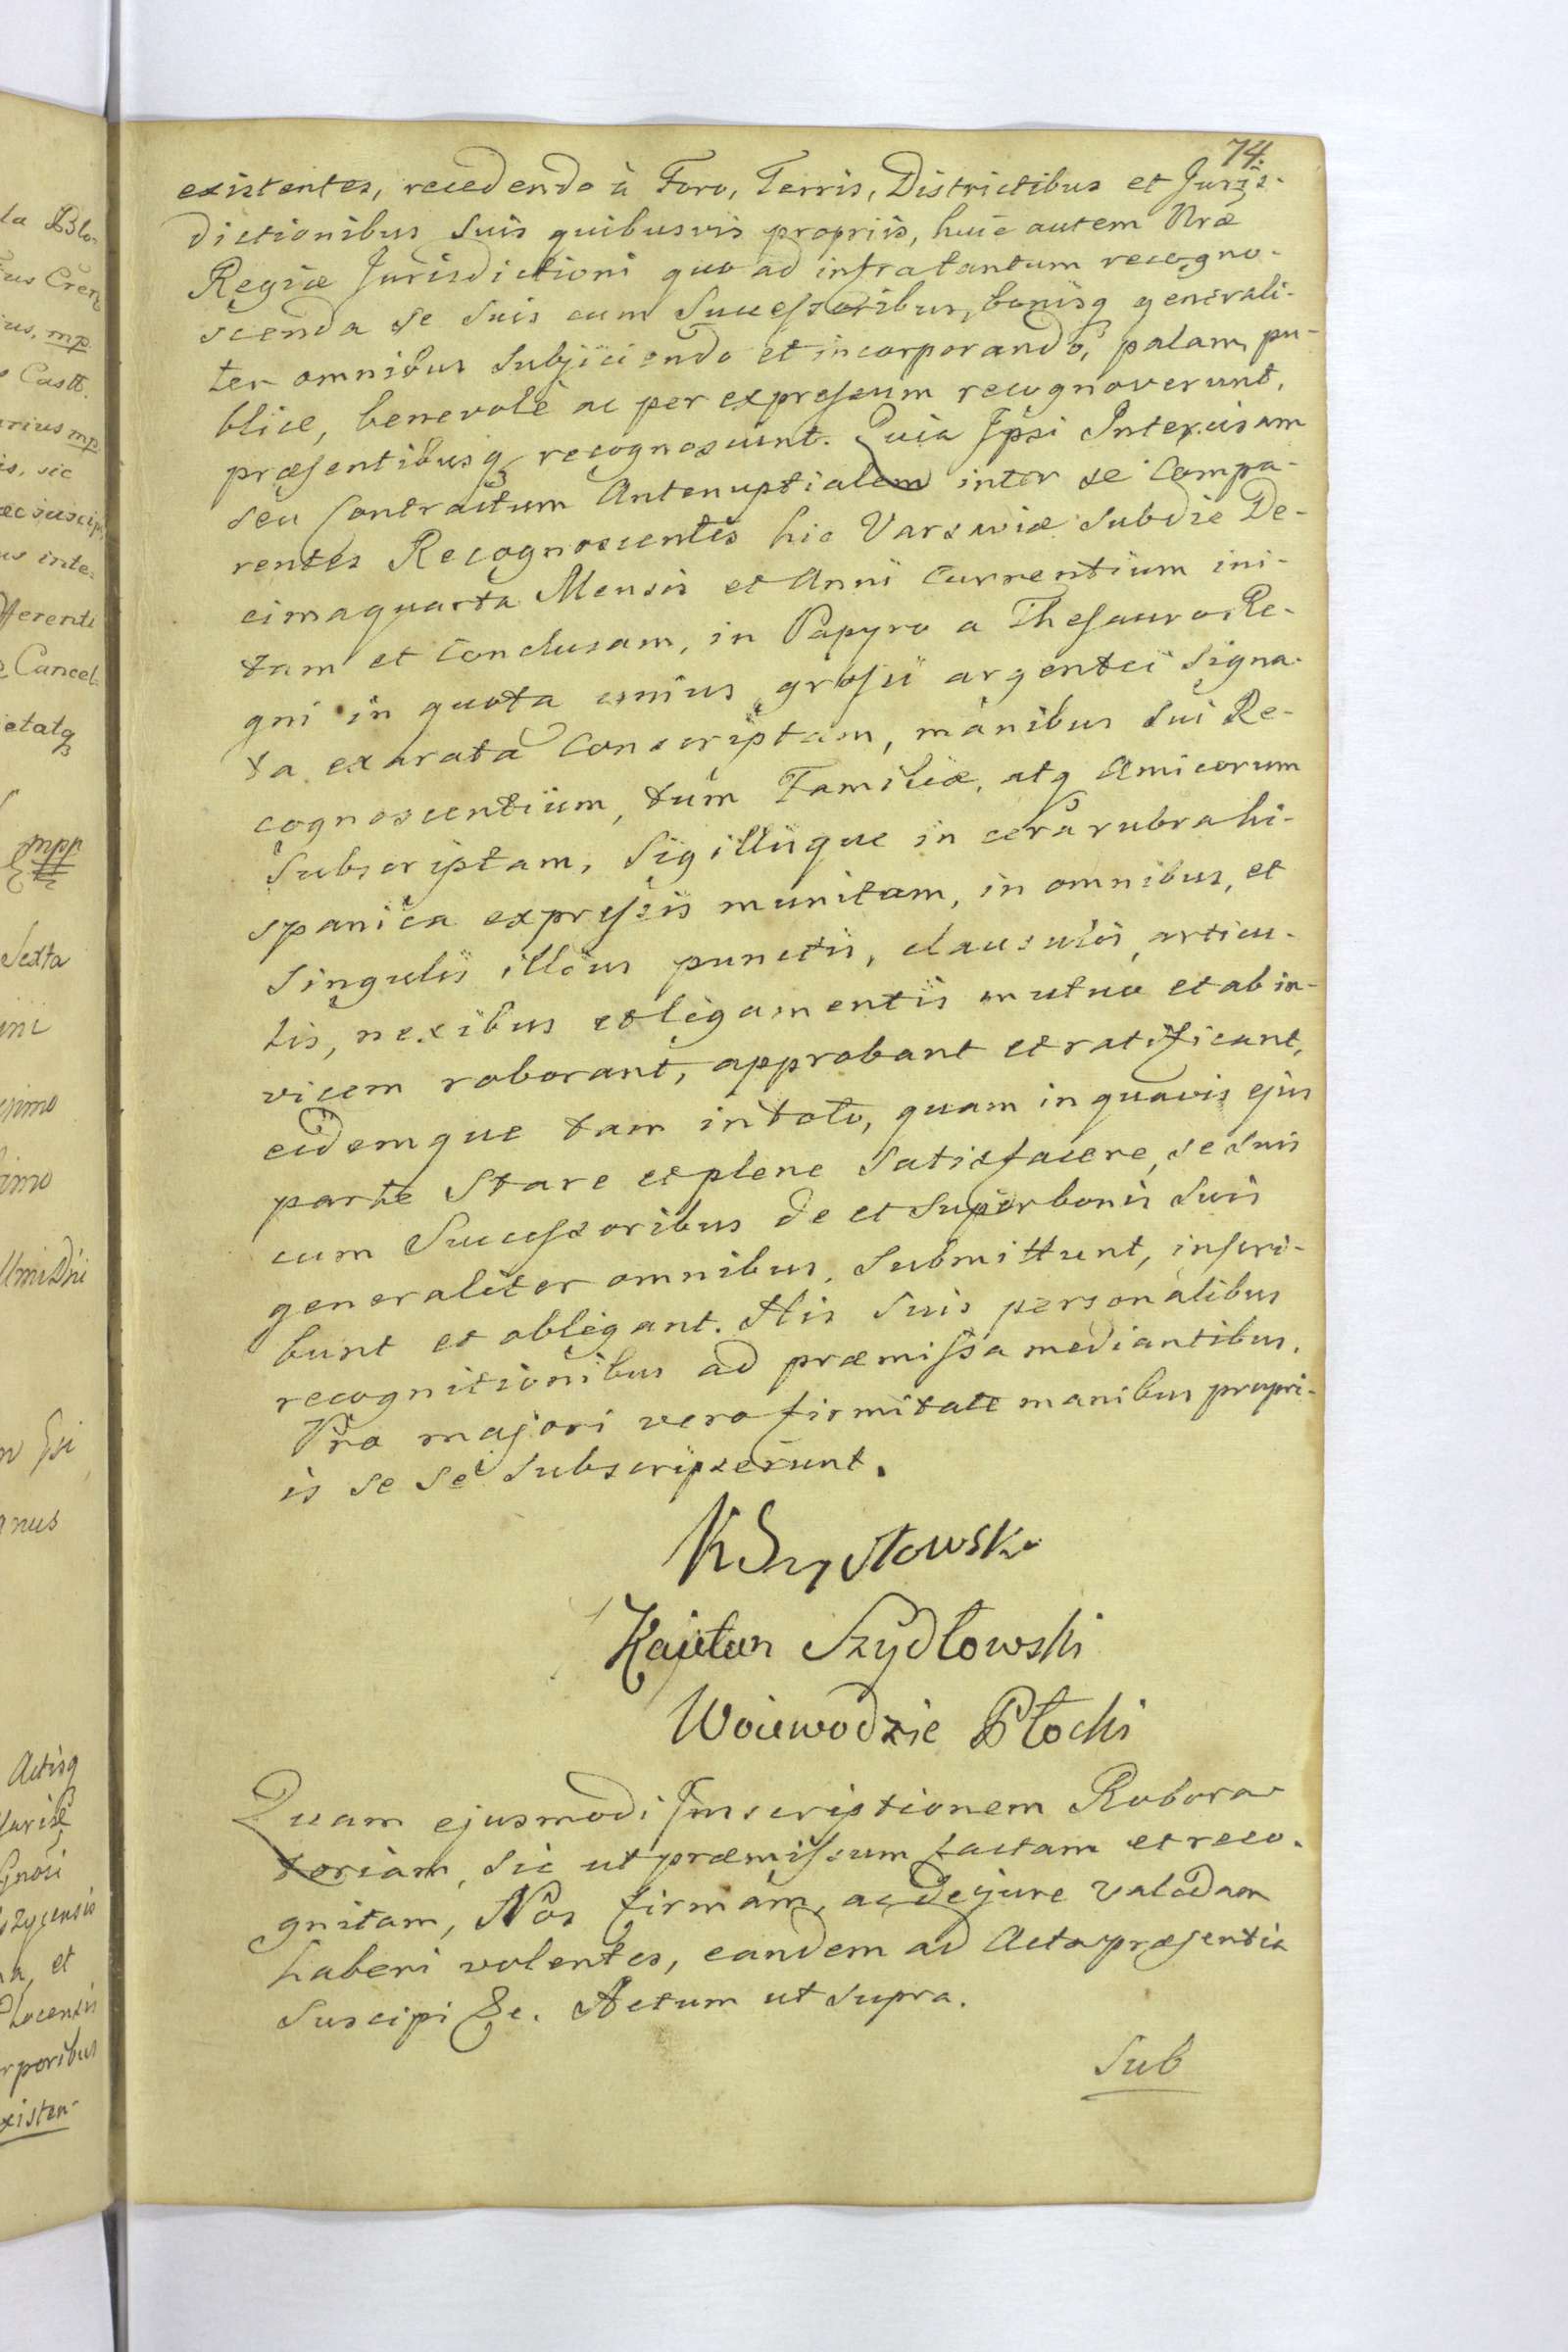 74.
existentes, recedendo à Foro, Terris, Districtibus et Juris-
dictionibus suis quibusvis propriis, huic autem Nræ
Regiæ Jurisdictioni quo ad infratantum recogno-
scenda se suis cum Successoribus, bonisq generali-
ter omnibus subjiciendo et incorporando, palam, pu-
blice, benevolè ac per expressum recognoverunt,
præsentibusq recognoscunt. Quia Ipsi Intercisam
seu Contractum Antenuptialem inter se Compa-
rentes Recognoscentes hic Varsaviæ sub die De-
cimaquarta Mensis et Anni Currentium ini-
tam et Conclusam, in Papyro a Thesauro Re-
gni in quota unius grossi argentei signa-
ta exarata Conscriptam, manibus sui Re-
cognoscentium, tum Familiæ, atq Amicorum
subscriptam, Sigillisque in cera rubra hi-
spanica expressis munitam, in omnibus, et
singulis illius punctis, clausulis, articu-
lis, nexibus et ligamentis mutuo et ab in-
vicem roborant, approbant et ratificant,
eidemque tam in toto, quam in quavis ejus
parte stare et plene satisfacere, se suis
cum Successoribus de et super bonis suis
generaliter omnibus, submittunt, inscri-
bunt et obligant. His suis personalibus
recognitionibus ad præmissa mediantibus.
Pro majori vero firmitate manibus propri-
is se se subscripserunt.
Kajetan Szydłowski
Woiewodzic Płocki
Quam ejusmodi Inscriptionem Robora-
toriam, sic ut præmissum factam et reco-
gnitam, Nos firmam, ac de jure validam
haberi volentes, eandem ad Acta præsentia
suscipi &c. Actum ut supra.
Sub
la Blo-
mp
Castt.
mp
is, sic
inte-
fferenti
Cancel-
mpp
Sexta
Actisq
et
xisten-